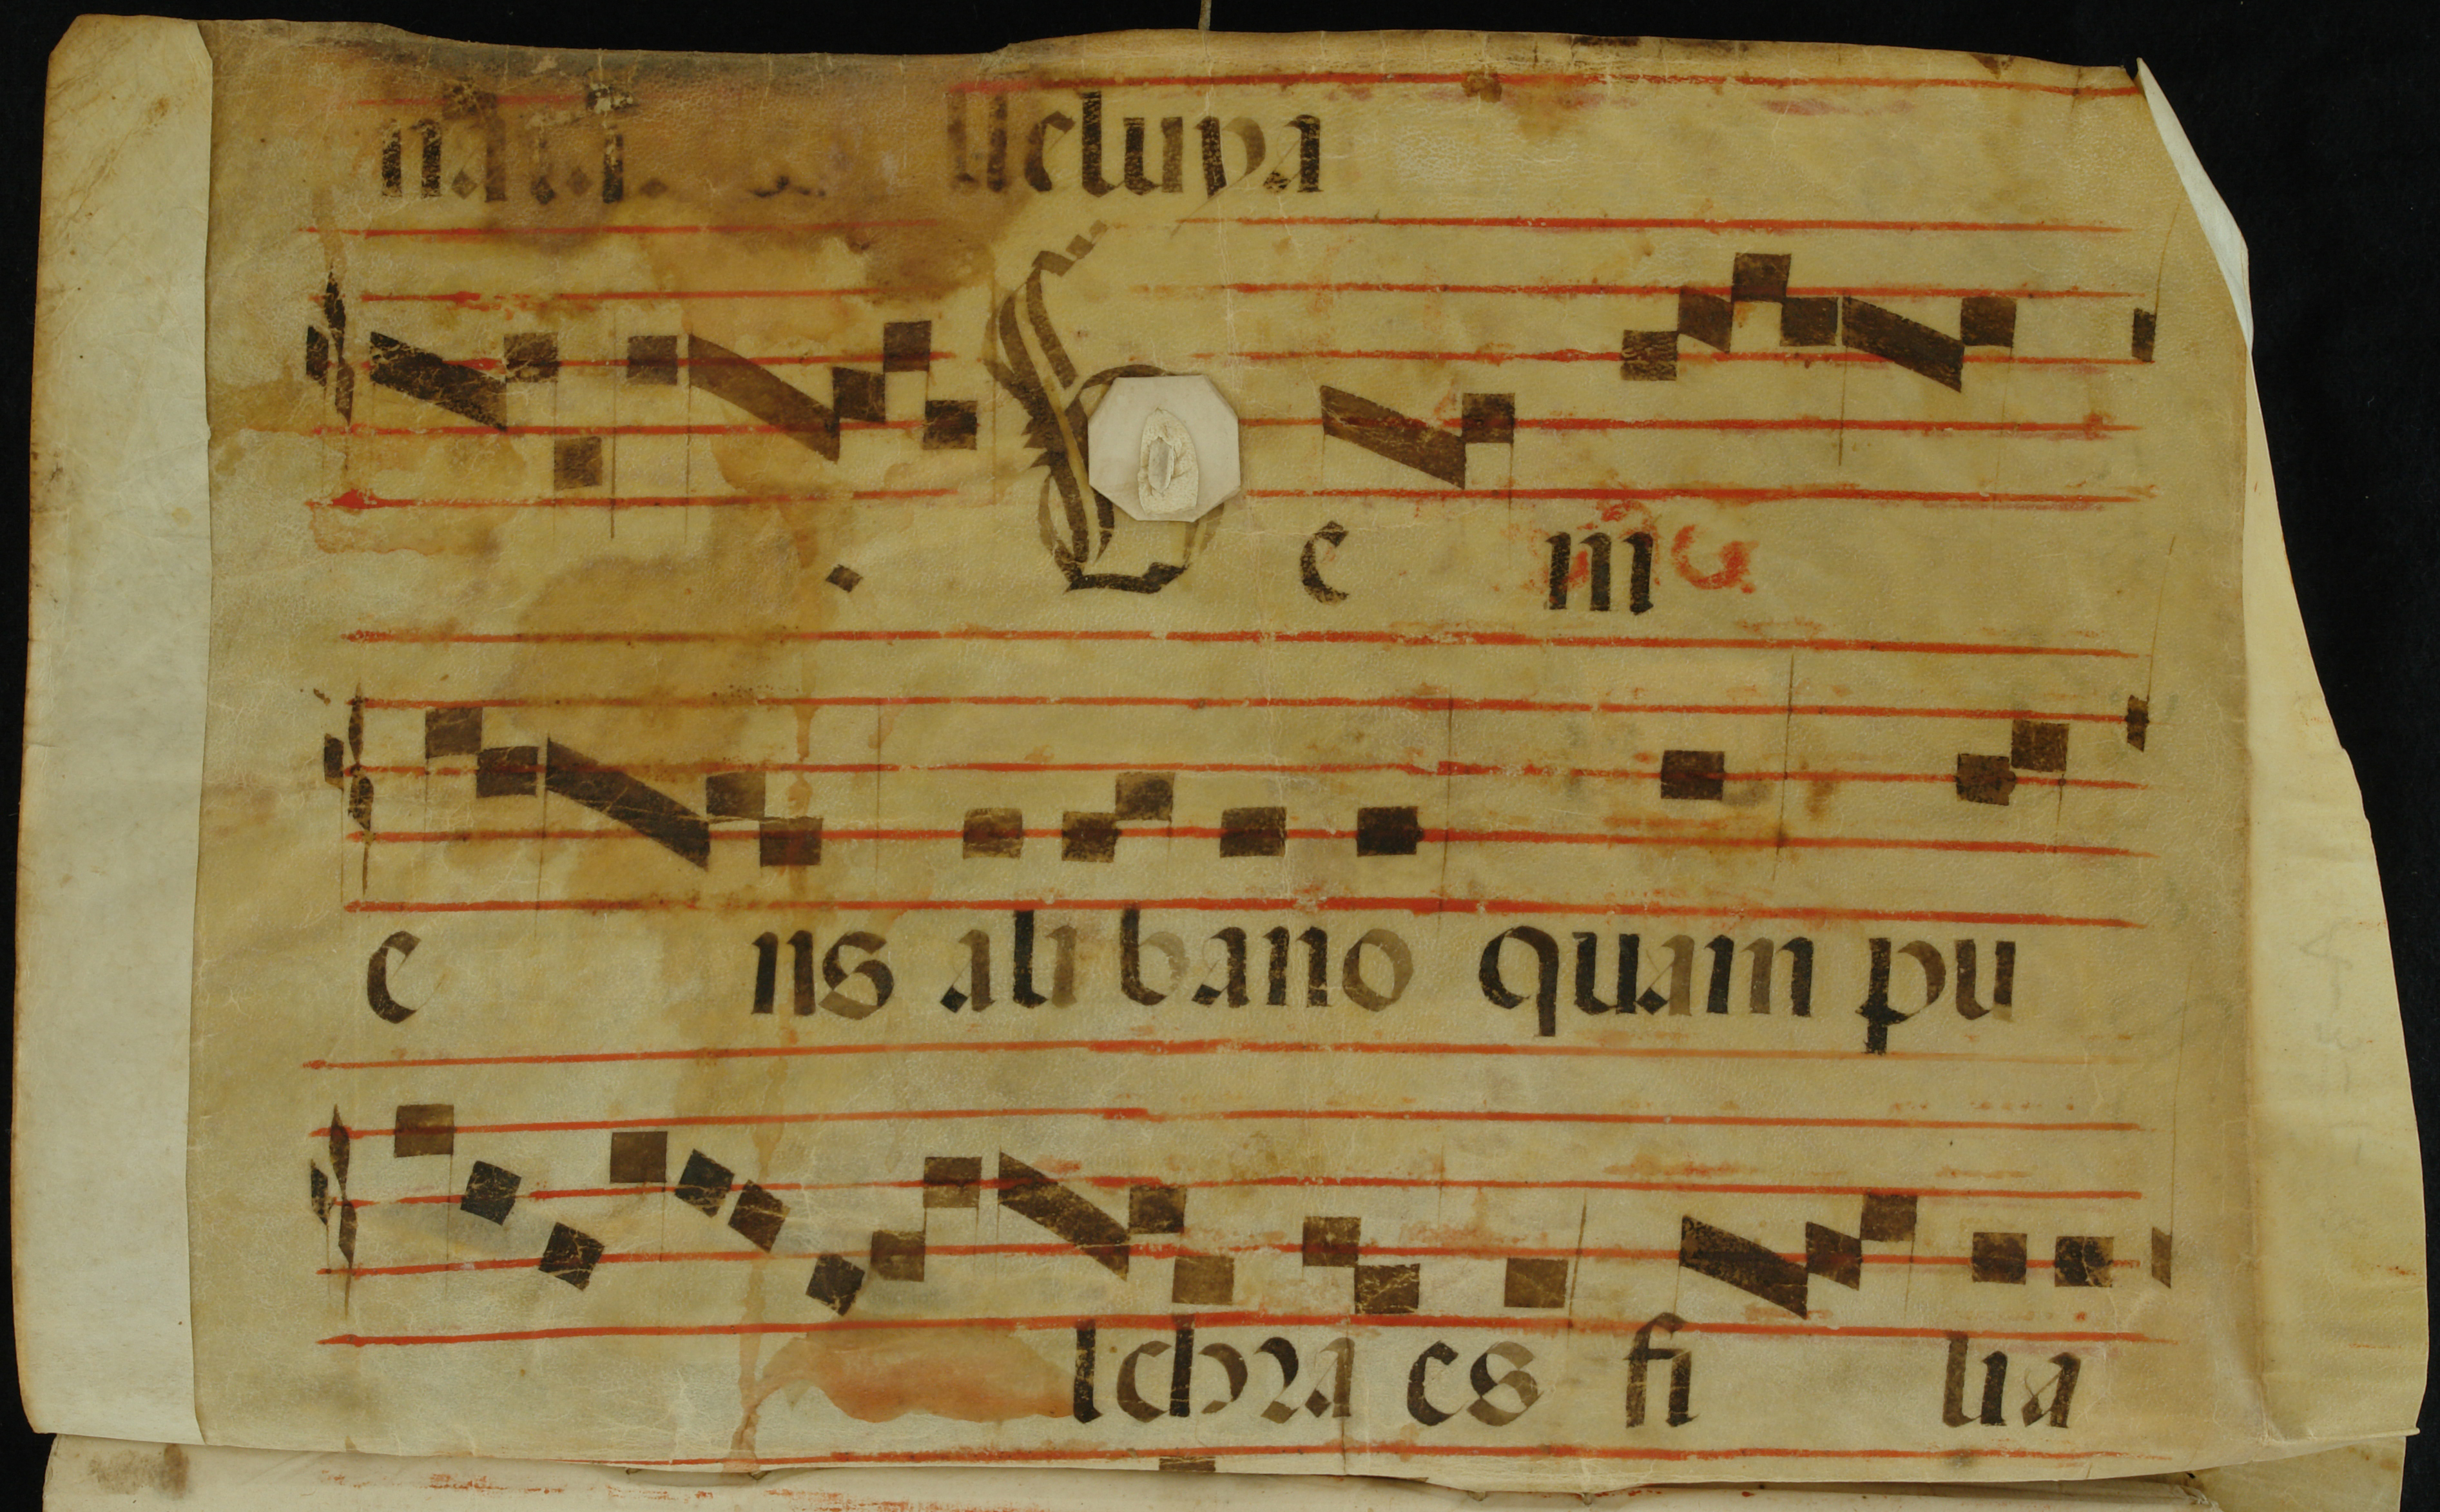 lleluya
V e ni
e ns ali bano quam pu
lchra es fi lia